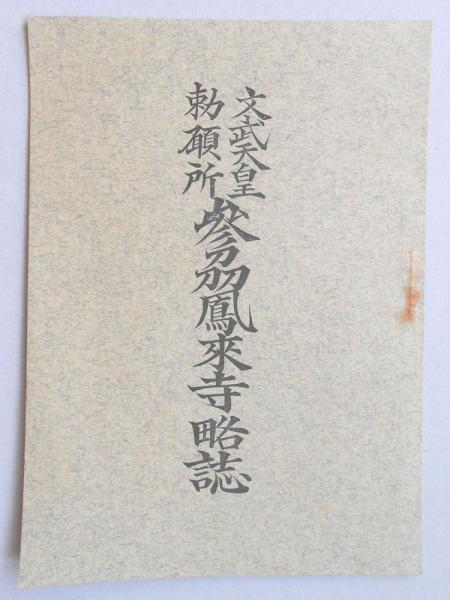 文武天皇
勅願所
參刕鳳來寺略誌